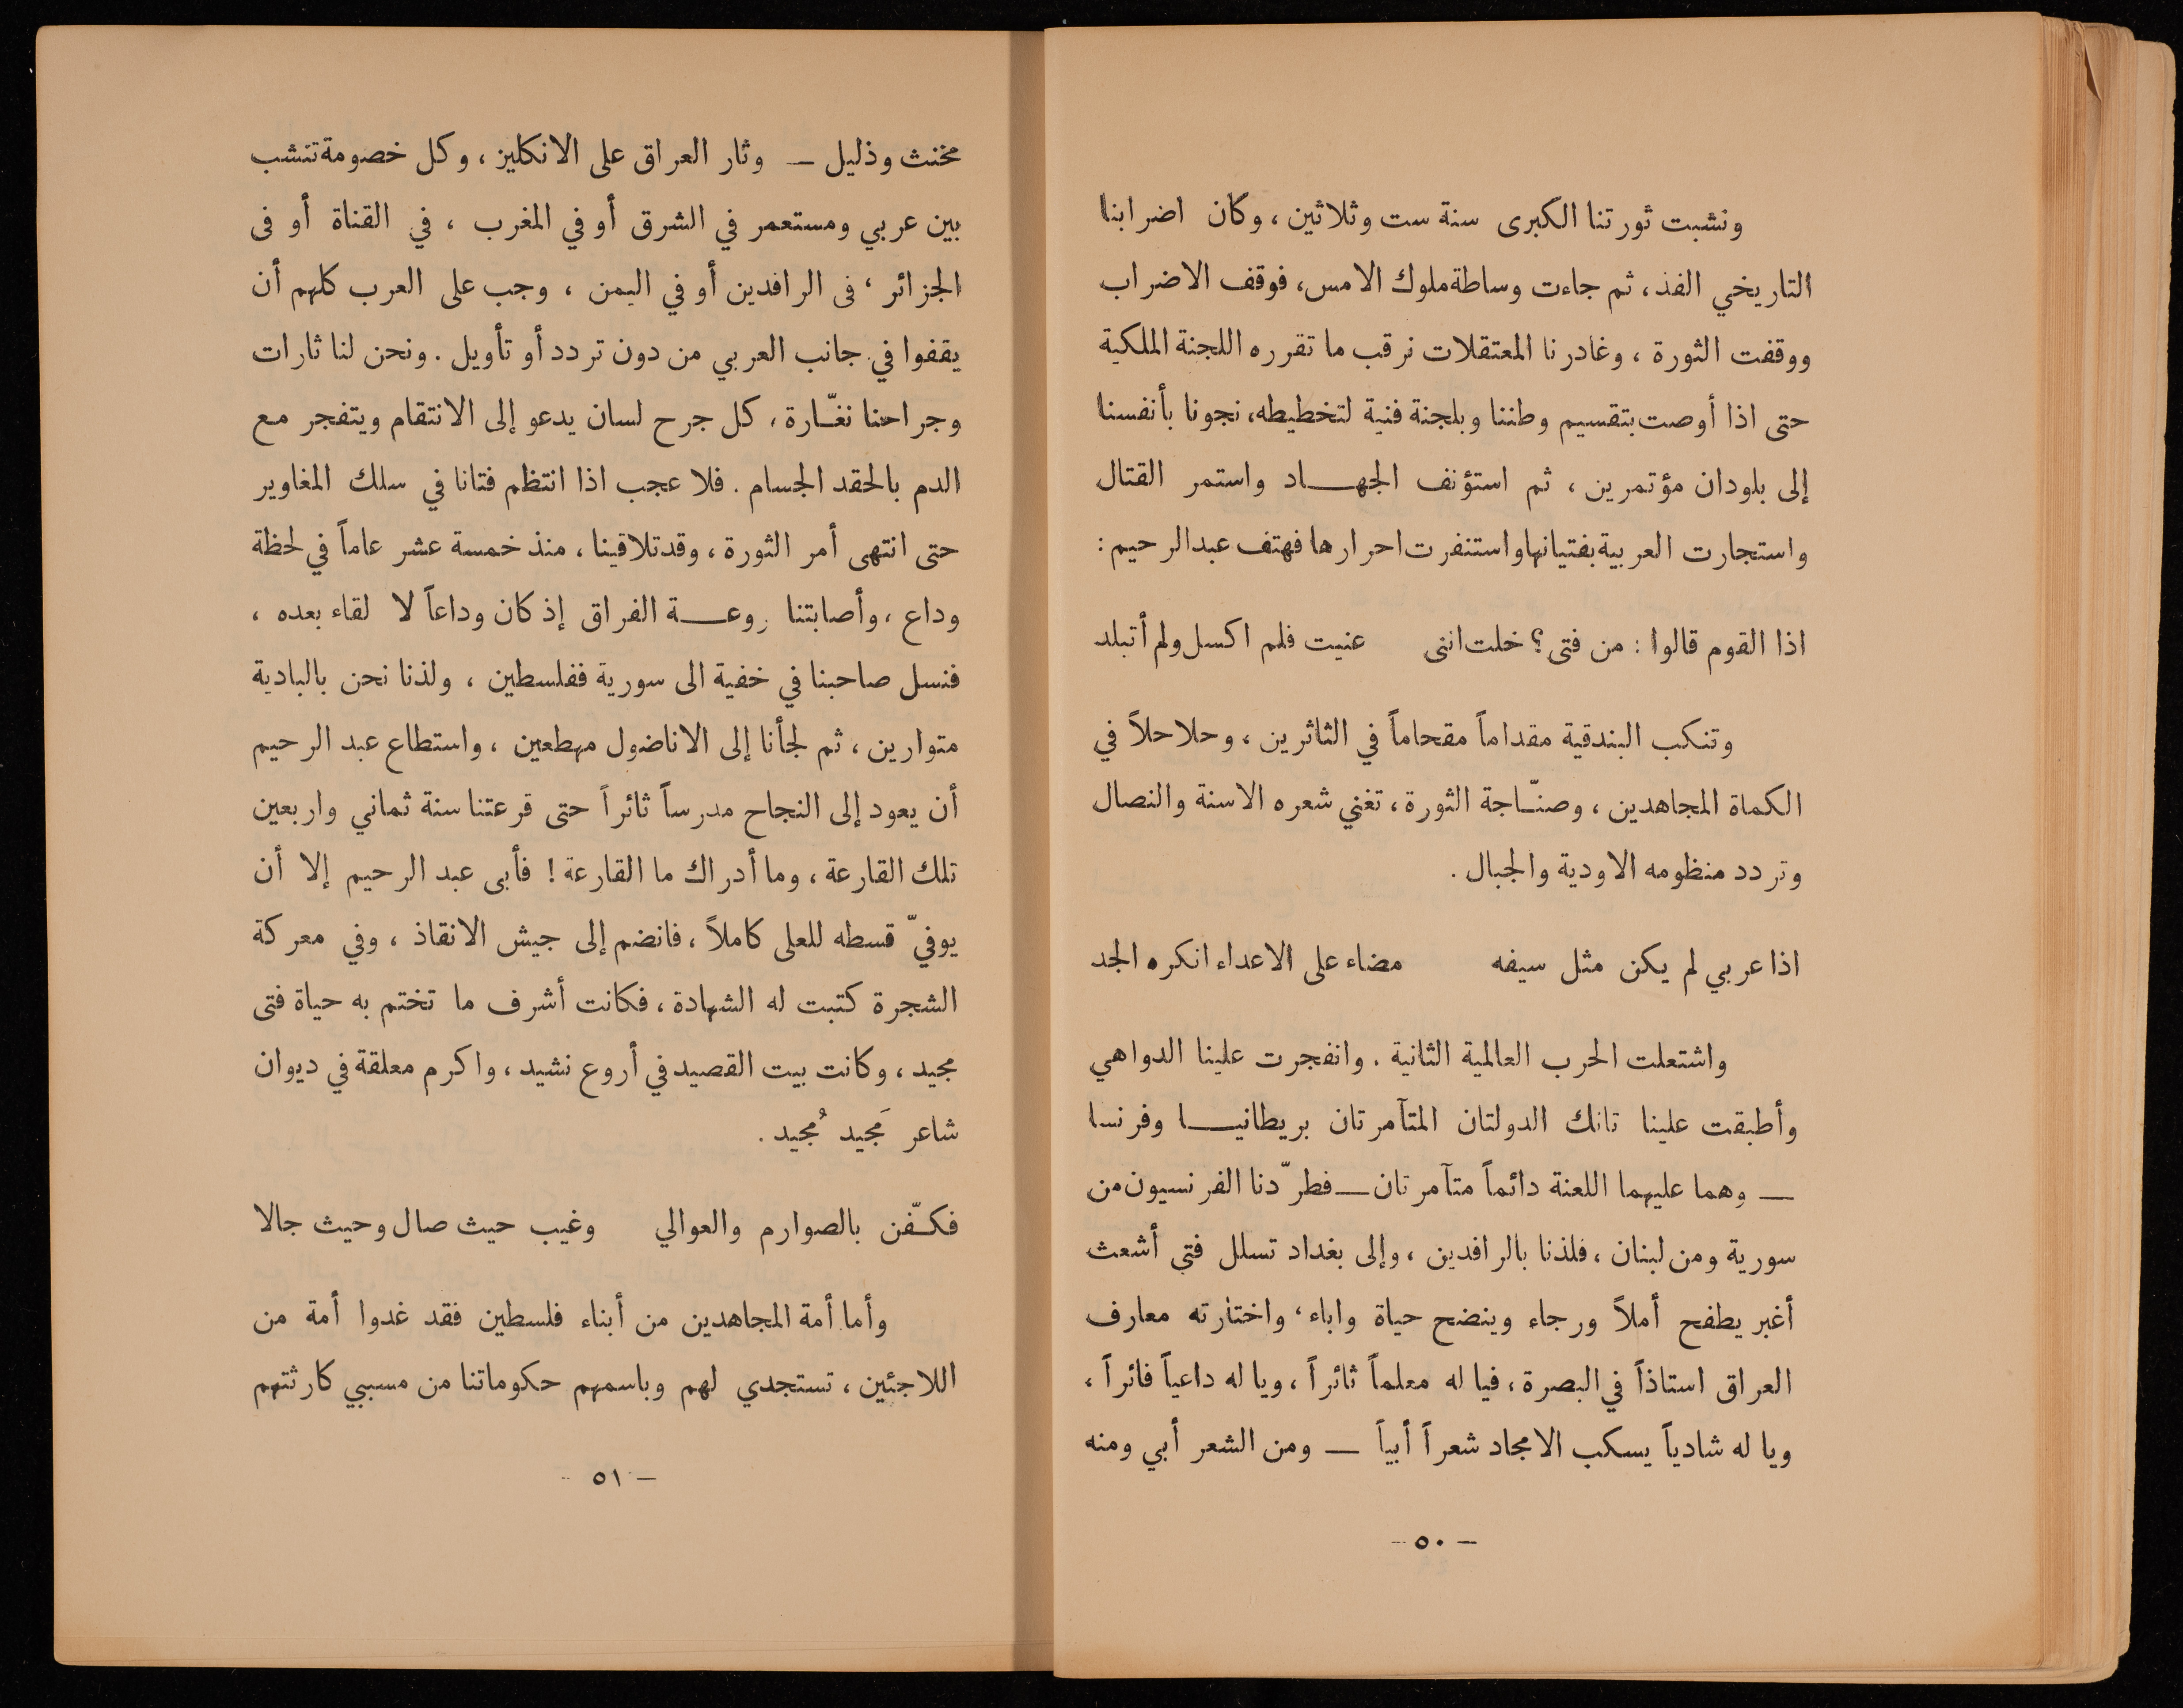 ونشبت ثورتنا الكبرى سنة ست وثلاثين ، وكان اضرابنا
التاريخي الفذ ، ثم جاءت وساطة ملوك الامس ، فوقف الاضراب
ووقفت الثورة ، وغادرنا المعتقلات نرقب ما تقرره اللجنة الملكية
حتى اذا أوصت بتقسيم وطننا وبلجنة فنية لتخطيطه ، نجونا بأنفسنا
إلى بلودان مؤتمرين ، ثم استؤنف الجهــاد واستمر القتال
واستجارت العربية بفتيانها واستنفرت احرارها فهتف عبد الرحيم :
اذا القوم قالوا : من فتى ؟ خلت انني عنيت فلم اكسل ولم أتبلد
وتنكب البندقية مقداماً مقحاماً في الثائرين ، وحلاحلاً في
الكماة المجاهدين ، وصنّـاجة الثورة ، تغني شعره الاسنة والنصال
وتردد منظومه الاودية والجبال .
اذا عربي لم يكن مثل سيفه مضاء على الاعداء انكره الجد
واشتعلت الحرب العالمية الثانية . وانفجرت علينا الدواهي
وأطبقت علينا تانك الدولتان المتآمرتان بريطانيــا وفرنسا
— وهما عليهما اللعنة دائماً متآمرتان — فطرّدنا الفرنسيون من
سورية ومن لبنان ، فلذنا بالرافدين ، وإلى بغداد تسلل فتى أشعث
أغبر يطفح أملاً ورجاء وينضح حياة واباء ، واختارته معارف
العراق استاذاً في البصرة ، فيا له معلماً ثائراً ، ويا له داعياً فائراً ،
ويا له شادياً يسكب الامجاد شعراً أبياً — ومن الشعر أبي ومنه
— ٥٠ —
مخنث وذليل — وثار العراق على الانكليز ، وكل خصومة تنشب
بين عربي ومستعمر في الشرق أو في المغرب ، في القناة أو فى
الجزائر ، فى الرافدين أو في اليمن ، وجب على العرب كلهم أن
يقفوا في جانب العربي من دون تردد أو تأويل . ونحن لنا ثارات
وجراحنا نغّـارة ، كل جرح لسان يدعو إلى الانتقام ويتفجر مع
الدم بالحقد الجسام . فلا عجب اذا انتظم فتانا في سلك المغاوير
حتى انتهى أمر الثورة ، وقد تلاقينا ، منذ خمسة عشر عاماً في لحظة
وداع ، وأصابتنا روعــة الفراق إذ كان وداعاً لا لقاء بعده ،
فنسل صاحبنا في خفية الى سورية ففلسطين ، ولذنا نحن بالبادية
متوارين ، ثم لجأنا إلى الاناضول مهطعين ، واستطاع عبد الرحيم
أن يعود إلى النجاح مدرساً ثائراً حتى قرعتنا سنة ثماني واربعين
تلك القارعة ، وما أدراك ما القارعة ! فأبى عبد الرحيم إلا أن
يوفيّ قسطه للعلى كاملاً ، فانضم إلى جيش الانقاذ ، وفي معركة
الشجرة كتبت له الشهادة ، فكانت أشرف ما تختم به حياة فتى
مجيد ، وكانت بيت القصيد في أروع نشيد ، واكرم معلقة في ديوان
شاعر مَجيد مُجيد .
فكـفّن بالصوارم والعوالي وغيب حيث صال وحيث جالا
وأما أمة المجاهدين من أبناء فلسطين فقد غدوا أمة من
اللاجئين ، تستجدي لهم وباسمهم حكوماتنا من مسببي كارثتهم
— ٥١ —